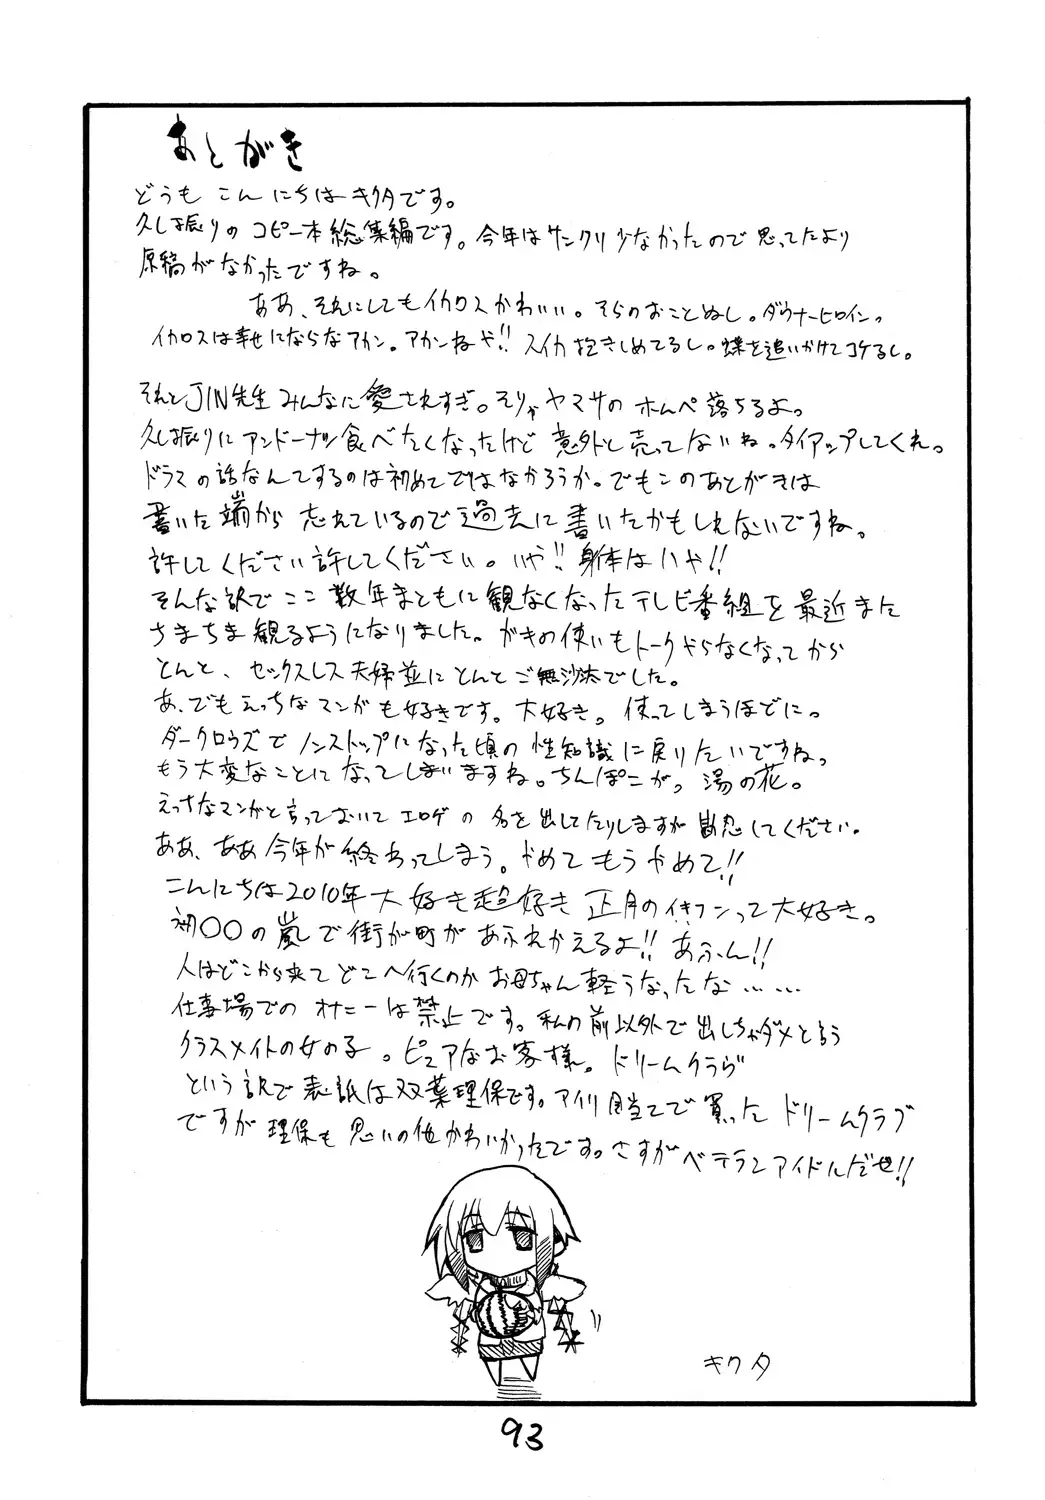 あとがき
どうも こんにちは キクタです。
久し振りの コピー本 総集編です。今年は サンクリ 少なかったので 思ってたより
原稿がなかったですね。
ああ、それにしてもイカロスかわいい。そらのおことぬし。ダウナーヒロイン。
イカロスは幸せにならなアカン。アカンねや!! スイカ抱きしめてるし。蝶を追いかけてコケるし。
それとJIN先生みんなに愛されすぎ。そりゃヤマサの ホムペ落ちるよ。
久し振りにアンドーナツ食べたくなったけど 意外と売ってないね。タイアップしてくれ。
ドラマの話なんてするのは初めてではなかろうか。でもこのあとがきは
書いた端から 忘れているので過去に書いたかもしれないですね。
許してください許してください。いや!! 身体はいや!!
そんな訳で ここ 数年まともに観なくなったテレビ番組を最近また
ちまちま観るようになりました。ガキの使いもトークやらなくなってから
とんと、セックスレス夫婦並にとんとご無沙汰でした。
あ、でもえっちなマンガも好きです。大好き。使ってしまうほどに。
ダークロウズで ノンストップになった頃の性知識に戻りたいですね。
もう大変なことになってしまいますね。ちんぽこが。湯の花。
えっちなマンガと言っておいてエロゲの 名を出してたりしますが 勘忍してください。
ああ、ああ今年が終わってしまう。やめてもうやめて!!
こんにちは2010年大好き超好き 正月のイキフンって大好き。
初〇〇の嵐で街が町が あふれかえるよ!! あふん!!
人はどこから来てどこへ行くのか お母ちゃん軽うなったな……
仕事場での オナニーは禁止です。私の前以外で出しちゃダメと言う
クラスメイトの女の子。ピュアなお客様。ドリームクラヴ
という訳で表紙は双葉理保です。アイリ目当てで買ったドリームクラブ
ですが理保も思いの他かわいかったです。さすがベテランアイドルだぜ!!
キクタ
93